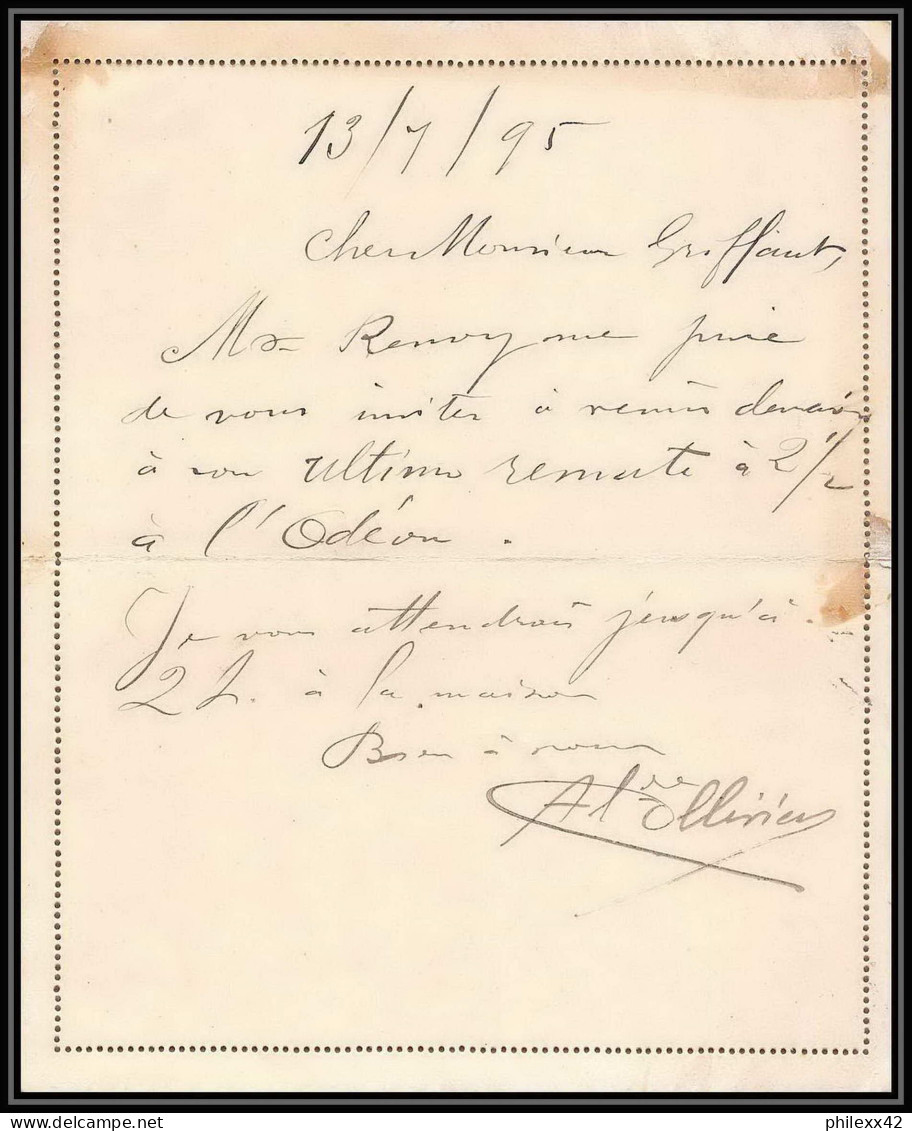 13/7/95
Cher Monsieur Griffaut,
Mr Renvoy me prie
de vous inviter à venir demain
à son ultime à 2 1/2
à l'Odéon.
Je vous attendrais jusqu'à
2 h. à la maison
Bien à vous
Ollivier
philexx42